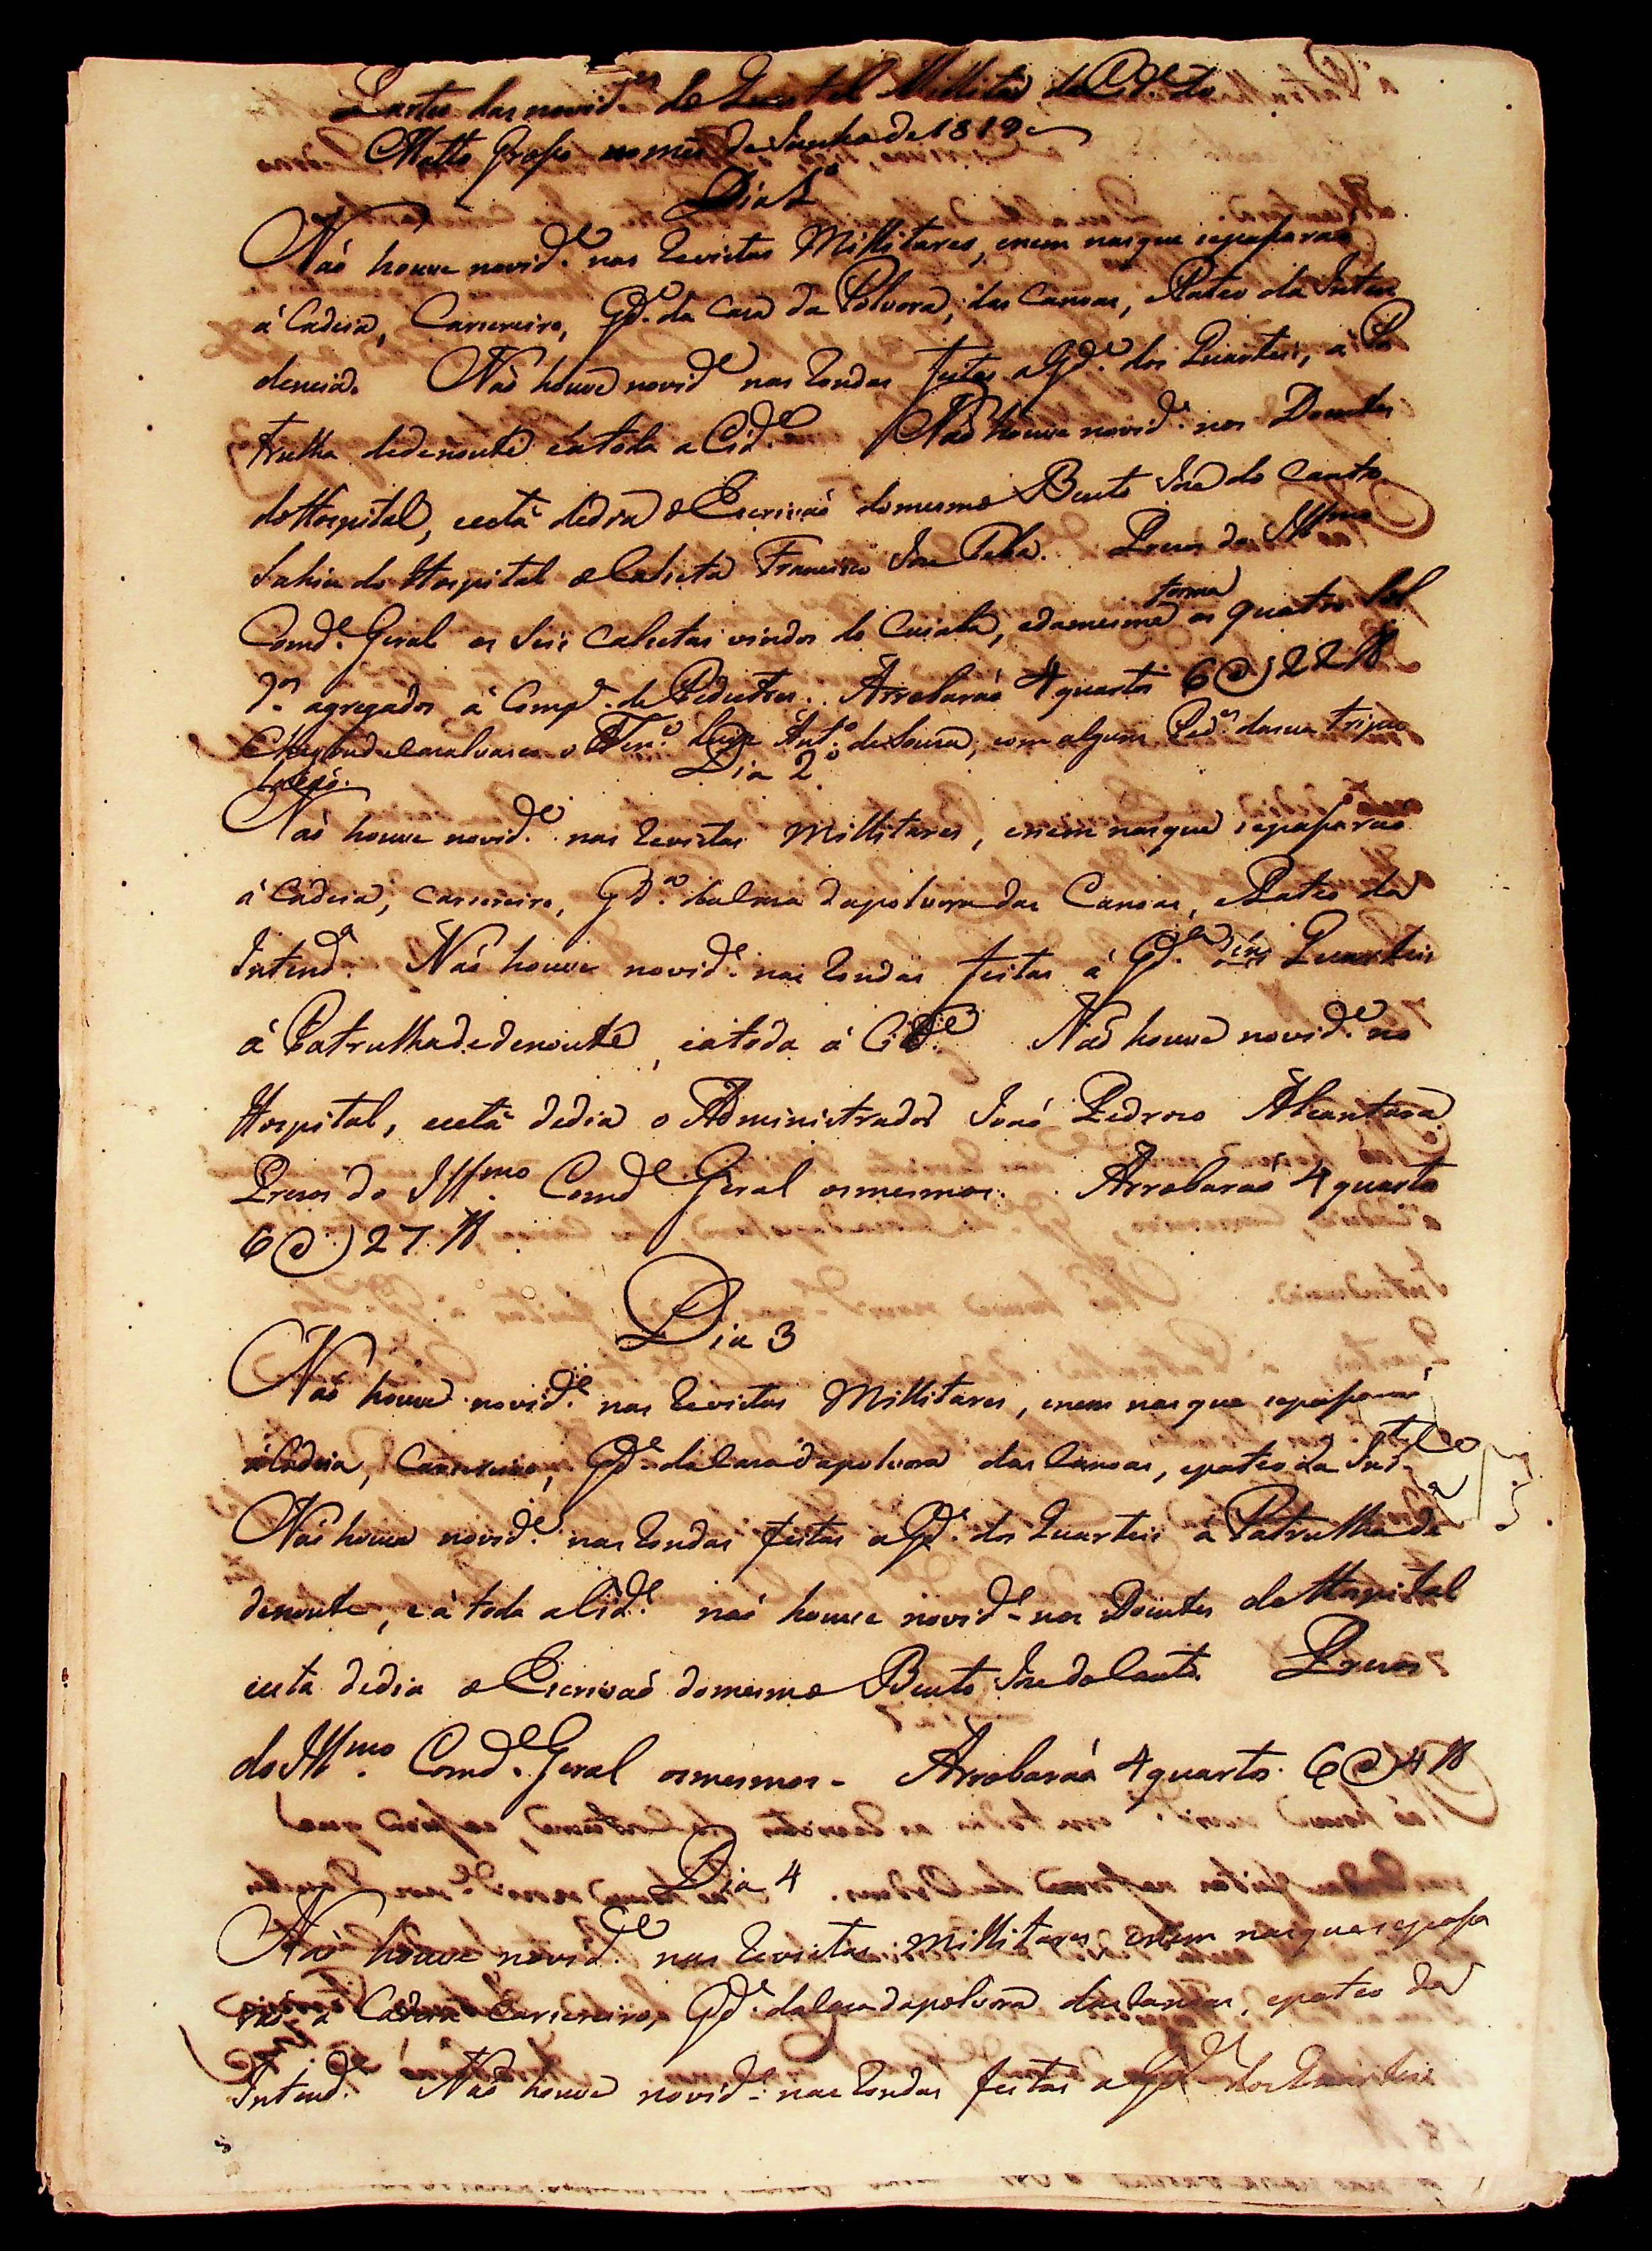 Partes das novid.es do Quartel Millitar da Cid.e do
Matto Groso no mes de Junho de 1819
Dia 1.o
Naõ houve novid.e nas Revistas Millitares, enem nasque sepaſaraõ
á Cadeia, Carcereiro, Gd.a da Casa da Polvora, das Canoas, ePateo da Inten
dencia. Naõ houve novid.e nas Rondas feitas a Gd.a dos Quarteis, a Pa
trulha dedenoute eatoda a Cid.e Naõ houve novid.e nos Doentes
doHospital, eestá dedia o Escrivaõ domesmo Bento Jose do Canto
Sahiu do Hospital o Calceta Francisco Jose Prezos do Ill.mo
Comd.e Geral os Seis Calcetas vindos do Cuiabá, edamesma forma os quatro Sol
d.os agregados á Comp.a de Pedestres. Arrobaraõ 4 quartos 6@22 ℔
Chegou deCasalvasco o Ten.e Luis Ant.o de Souza, com alguns Ped.es dasua tripu
laçaõ.
Dia 2
Naõ houve novid.e nas Revistas Millitares, enem nasque sepaſaraõ
á Cadeia, Carcereiro, Gd.a daCasa dapolvora das Canoas, ePateo da
Intend.a Naõ houve novid.e nas Rondas feitas á Gd.a dos Quarteis
á Patrulha dedenoute, eatoda á Cid.e Naõ houve novid.e no
Hospital, eestá dedia o Administrador Joaõ Pedroso Alcantara
Prezos do Ill.mo Comd.e Geral osmesmos. Arrobaraõ 4 quartos
6@27 ℔
Dia 3
Naõ houve novid.e nas Revistas Millitares, enem nasque sepaſaraõ
áCadeia, Carcereiro, Gd.a daCasa dapolvora das Canoas, epateo da Int.a
Naõ houve novid.e nas Rondas feitas a Gd.a dos Quarteis á Patrulha de
denoute, e á toda aCid.e naõ houve novid.e nos Doentes do Hospital
eesta dedia o Escrivaõ domesmo Bento Jose doCanto. Prezos
do Ill.mo Comd.e Geral osmesmos. Arrobaraõ 4 quartos 6@4 ℔
Dia 4
Naõ houve novid.e nas Revistas Millitares enem nasque sepaſa
raõ á Cadeia Carcereiro, Gd.a daCasa dapolvora dasCanoas, epateo da
Intend.a Naõ houve novid.e nas Rondas feitas a Gd.a dos Quarteis